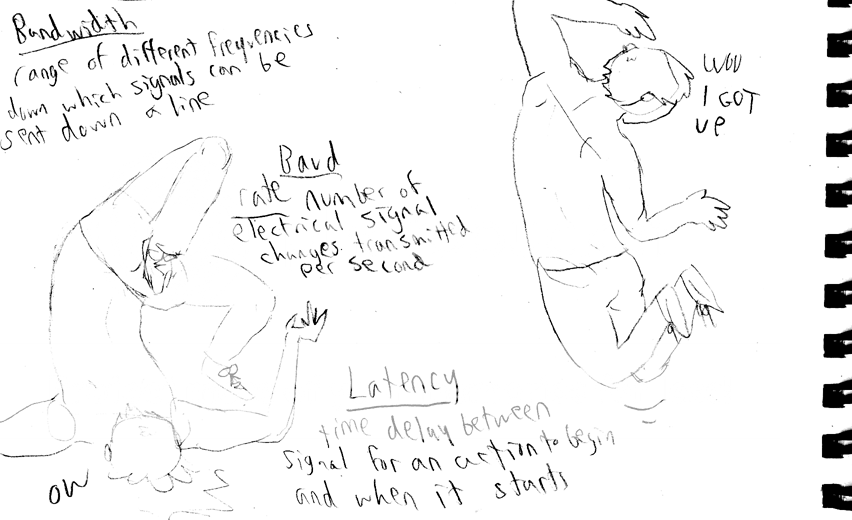 Bandwidth
range of different frequencies
down which signals can be
sent down a line
Baud
rate number of
electrical signal
changes transmitted
per second
WOO
I GOT
UP
Latency
time delay between
signal for an action to begin
and when it starts
OW